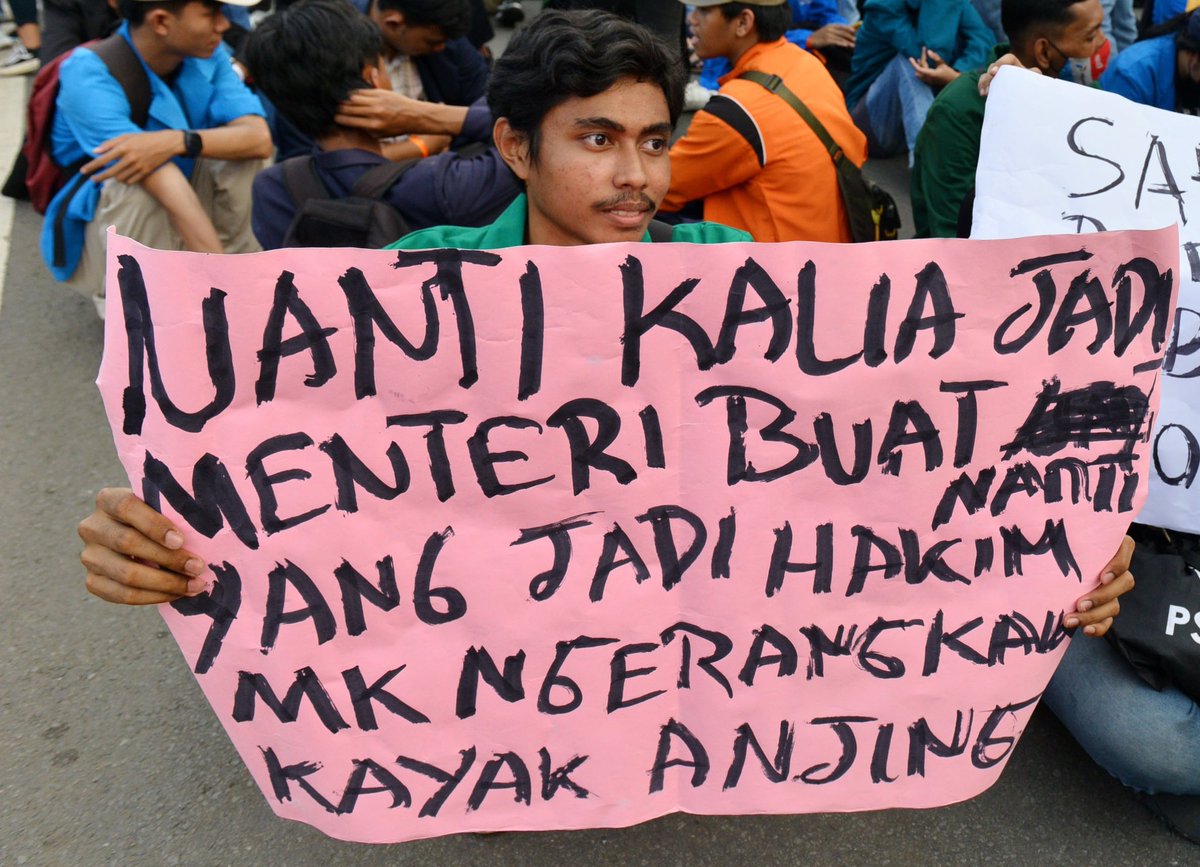 NANTI KALIA JADI
MENTERI BUAT
NANTI
YANG JADI HAKIM
MK NGERANGKAK
KAYAK ANJING
SA
PS